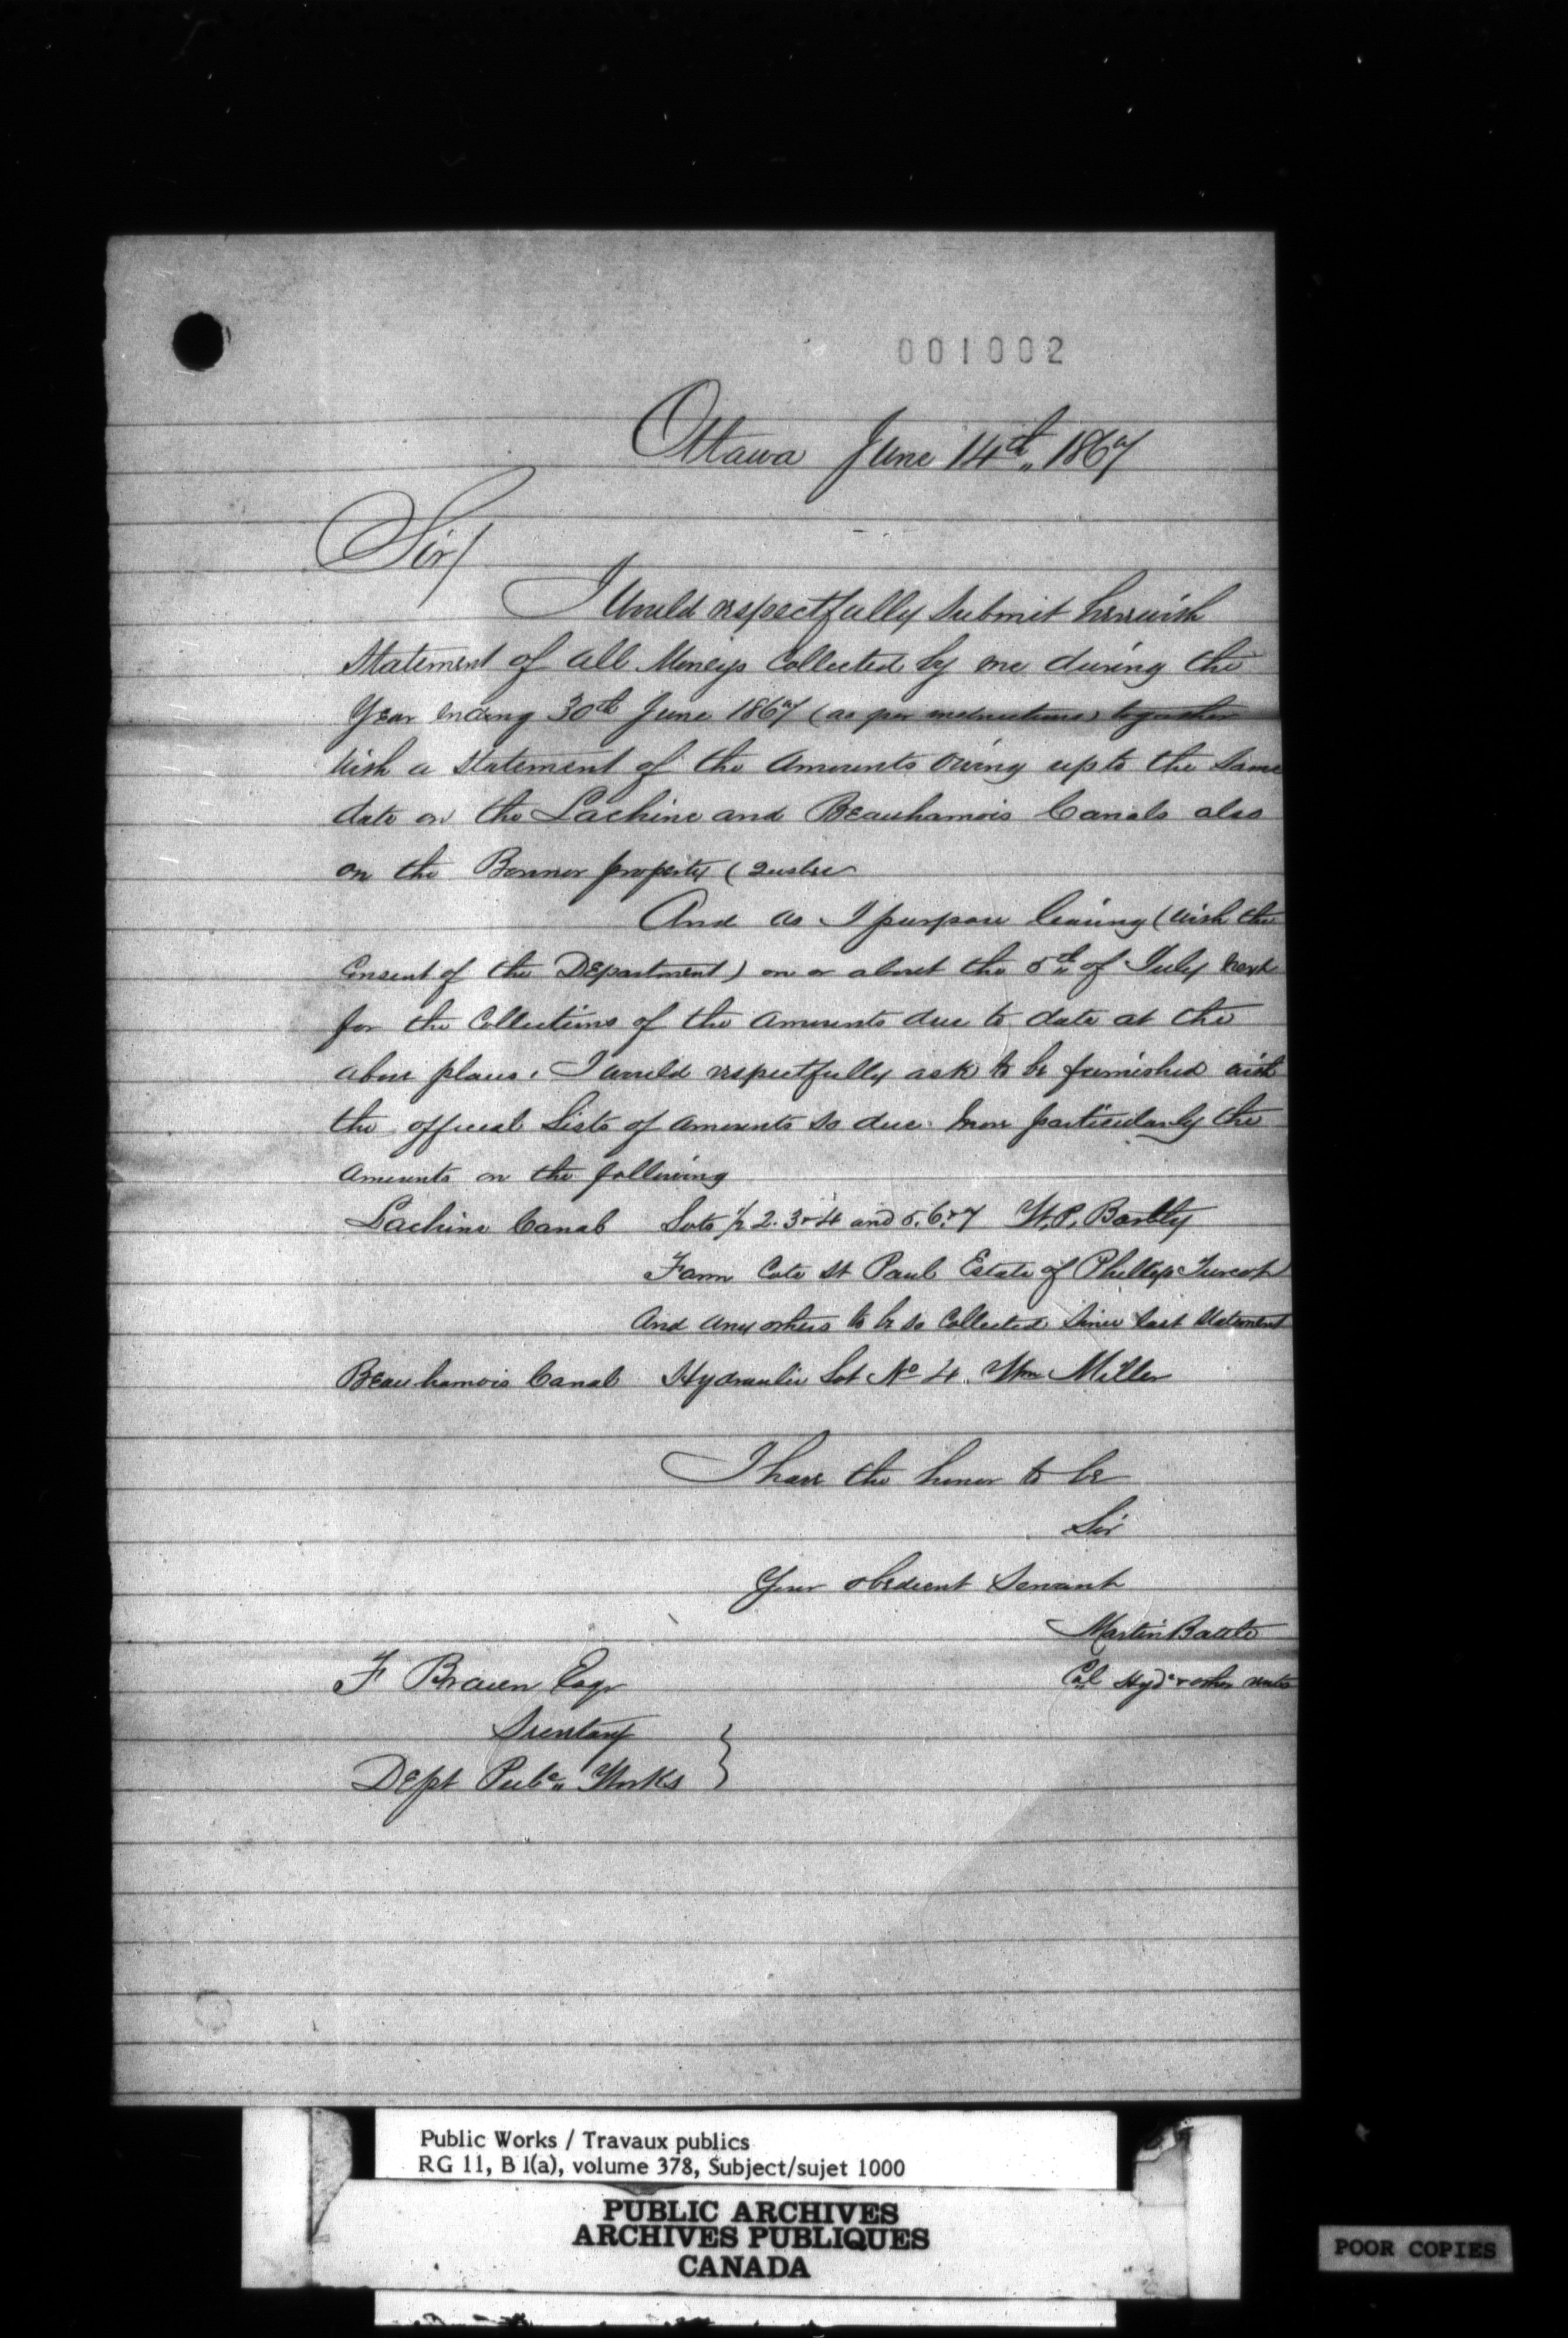 001002
Ottawa June 14th 1867
Sir/
I Would respectfully submit herewith
Statement of all Moneys Collected by me during the
Year ending 30th June 1867 (as per instructions) together
With a Statement of the Amounts Owing up to the Same
date on the Lachine and Beauharnois Canals also
on the Bonner property (Quebec
And as I purpose leaving (with the
Consent of the Department) on or about the 5th of July next
for the Collections of the Amounts due to date at the
above places, I would respectfully ask to be furnished with
the official Lists of Amounts so due more particularly the
Amounts on the following
Lachine Canal Lots 1/2 2. 3 & 4 and 5. 6. & 7 W. P. Bartley
Farm Cote St Paul Estate of Phillip Turcot
And any others to be so Collected Since last Statement
Beauharnois Canal Hydraulic Lot No 4. Wm Miller
I have the honor to be
Sir
Your obedient Servant
Martin Battle
Col Hydc & other rents
F Braun Esqr
Secretary
Dept Pubc Works
Public Works / Travaux publics
RG 11, B 1(a), volume 378, Subject/sujet 1000
PUBLIC ARCHIVES
ARCHIVES PUBLIQUES
CANADA
POOR COPIES